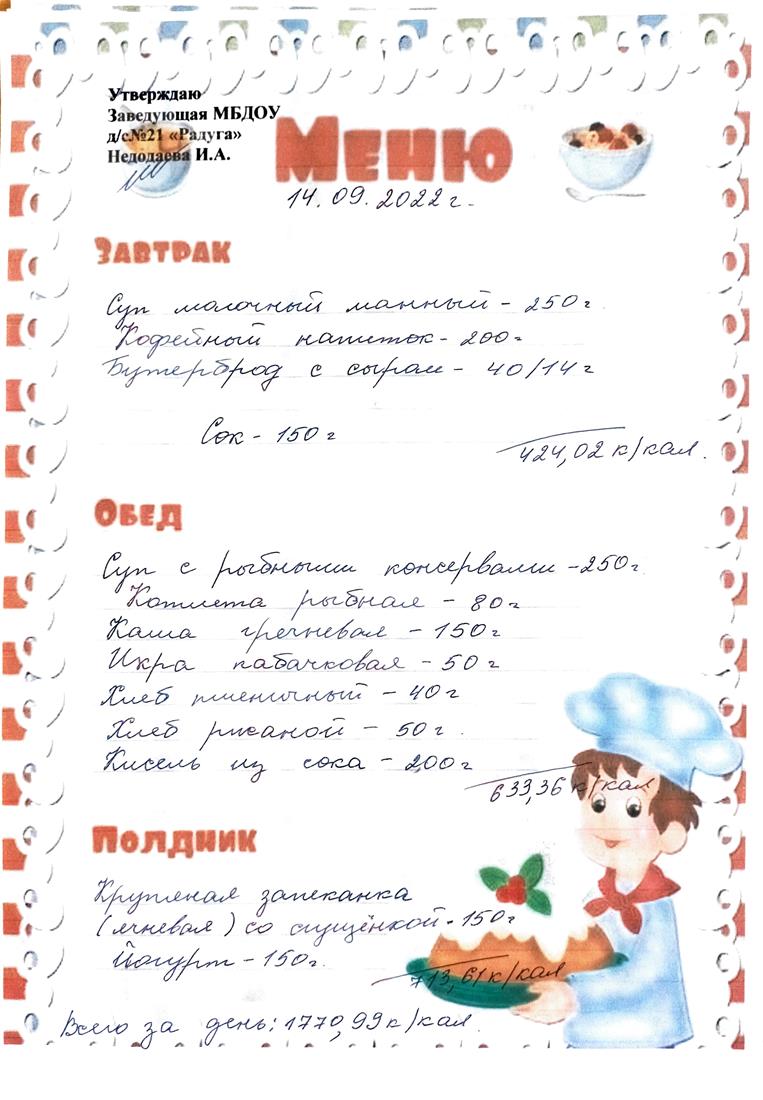 Утверждаю
Заведующая МБДОУ
д/с№21 «Радуга»
Недодаева И.А.
Меню
14.09.2022 г.
Завтрак
Суп молочный манный - 250 г
Кофейный напиток - 200 г
Бутерброд с сыром - 40/14 г
Сок - 150 г
424,02 к/кал.
Обед
Суп с рыбными консервами - 250 г.
Котлета рыбная - 80 г
Каша гречневая - 150 г
Икра кабачковая - 50 г
Хлеб пшеничный - 40 г
Хлеб ржаной - 50 г.
Кисель из сока - 200 г
633,36 к/кал
Полдник
Крупяная запеканка
(ячневая) со сгущёнкой - 150 г
Йогурт - 150 г.
713,61 к/кал
Всего за день: 1770,99 к/кал.